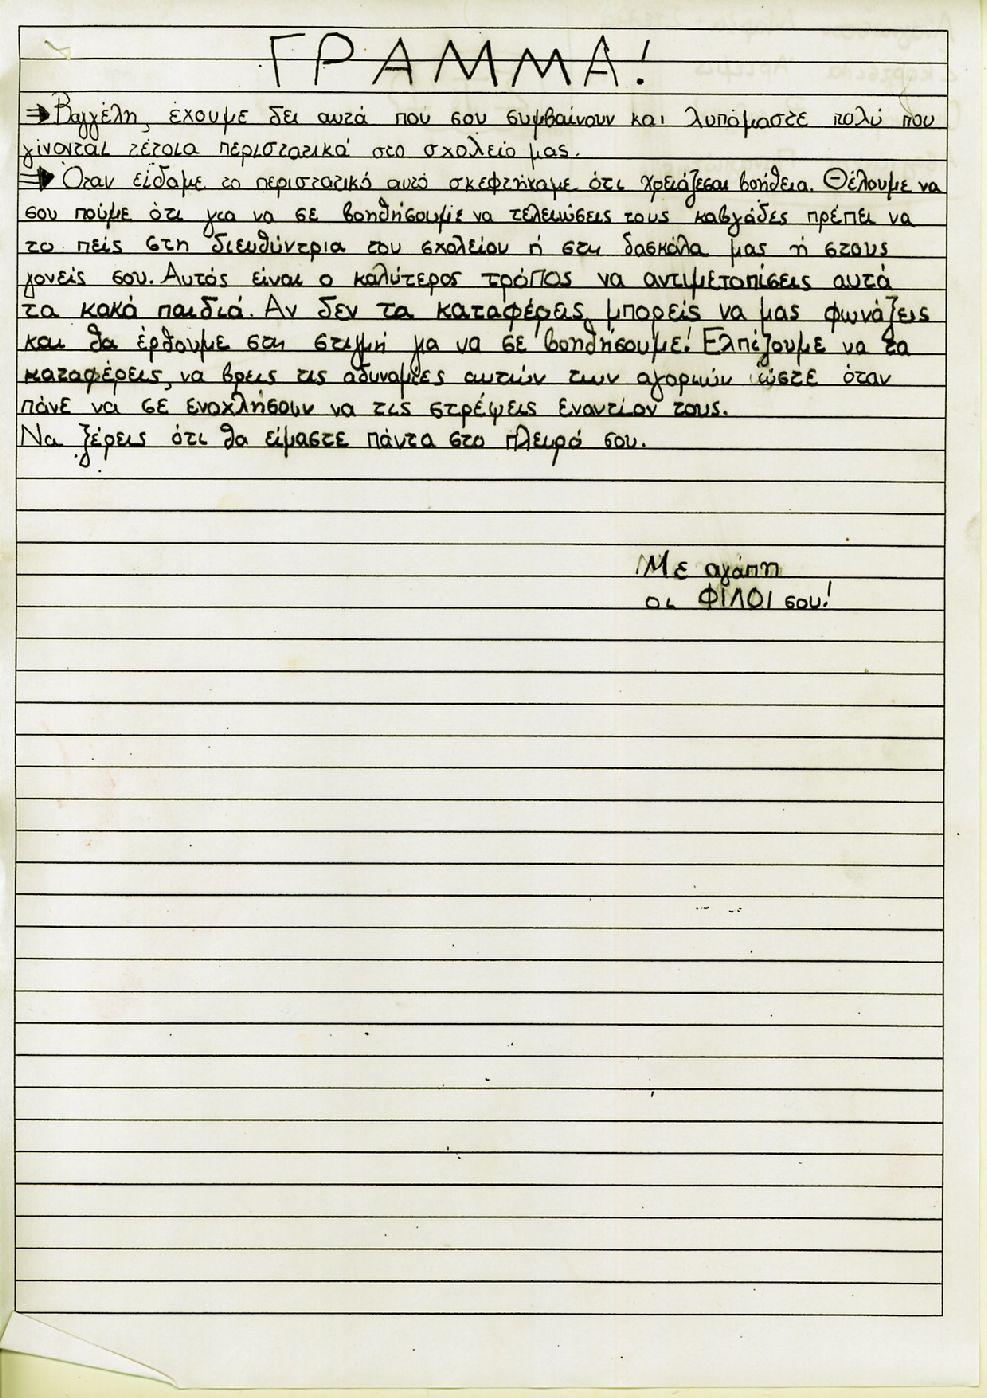 ΓΡΑΜΜΑ!
⇒ Βαγγέλη, έχουμε δει αυτά που σου συμβαίνουν και λυπόμαστε πολύ που
γίνονται τέτοια περιστατικά στο σχολείο μας.
⇒ Όταν είδαμε το περιστατικό αυτό σκεφτήκαμε ότι χρειάζεσαι βοήθεια. Θέλουμε να
σου πούμε ότι για να σε βοηθήσουμε να τελειώσεις τους καβγάδες πρέπει να
το πεις στη διευθύντρια του σχολείου ή στη δασκάλα μας ή στους
γονείς σου. Αυτός είναι ο καλύτερος τρόπος να αντιμετοπίσεις αυτά
τα κακά παιδιά. Αν δεν τα καταφέρεις, μπορείς να μας φωνάζεις
και θα έρθουμε στη στιγμή για να σε βοηθήσουμε! Ελπίζουμε να τα
καταφέρεις, να βρεις τις αδυναμίες αυτών των αγοριών ώστε όταν
πάνε να σε ενοχλήσουν να τις στρέψεις εναντίον τους.
Να ξέρεις ότι θα είμαστε πάντα στο πλευρό σου.
Με αγάπη
οι ΦΙΛΟΙ σου!